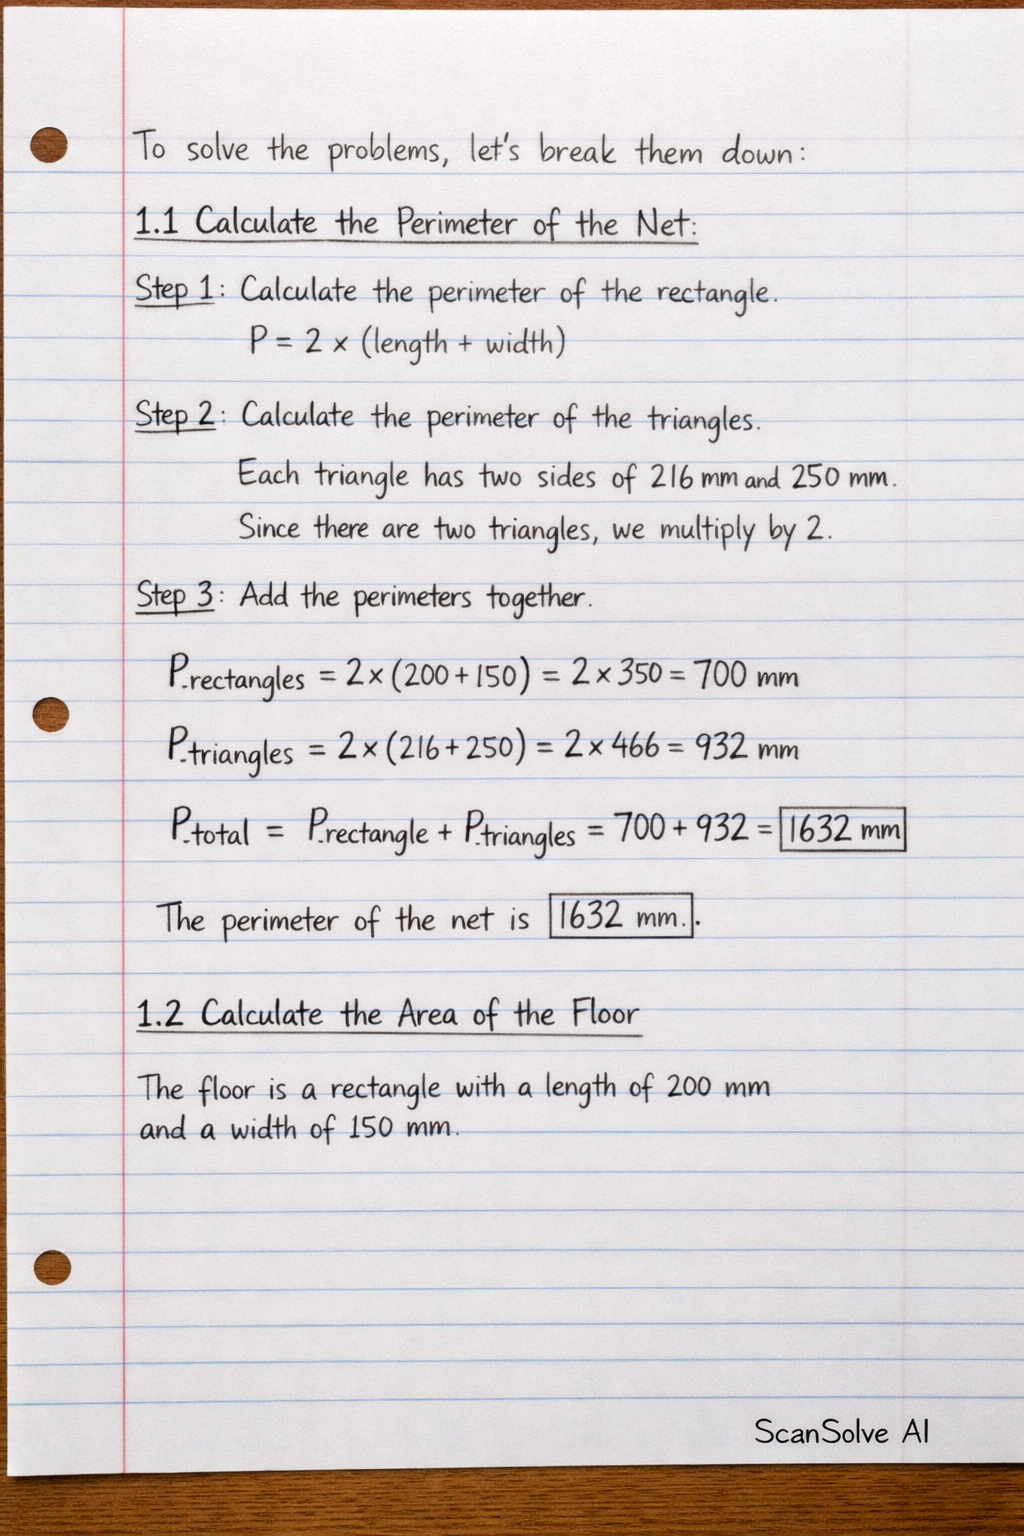 To solve the problems, let's break them down:
1.1 Calculate the Perimeter of the Net:
Step 1: Calculate the perimeter of the rectangle.
P = 2 × (length + width)
Step 2: Calculate the perimeter of the triangles.
Each triangle has two sides of 216 mm and 250 mm.
Since there are two triangles, we multiply by 2.
Step 3: Add the perimeters together.
P_rectangles = 2 × (200 + 150) = 2 × 350 = 700 mm
P_triangles = 2 × (216 + 250) = 2 × 466 = 932 mm
P_total = P_rectangle + P_triangles = 700 + 932 = 1632 mm
The perimeter of the net is 1632 mm..
1.2 Calculate the Area of the Floor
The floor is a rectangle with a length of 200 mm
and a width of 150 mm.
ScanSolve AI